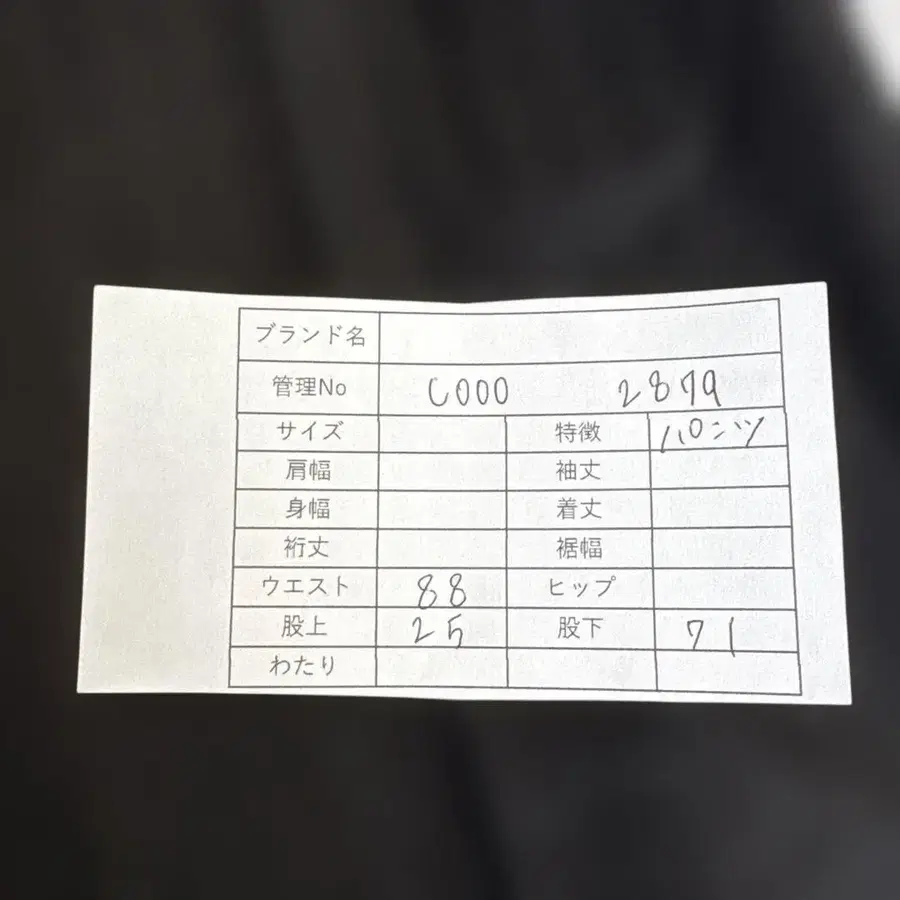 ブランド名
管理No C000 2879
サイズ 特徴 パンツ
肩幅 袖丈
身幅 着丈
裄丈 裾幅
ウエスト 88 ヒップ
股上 25 股下 71
わたり